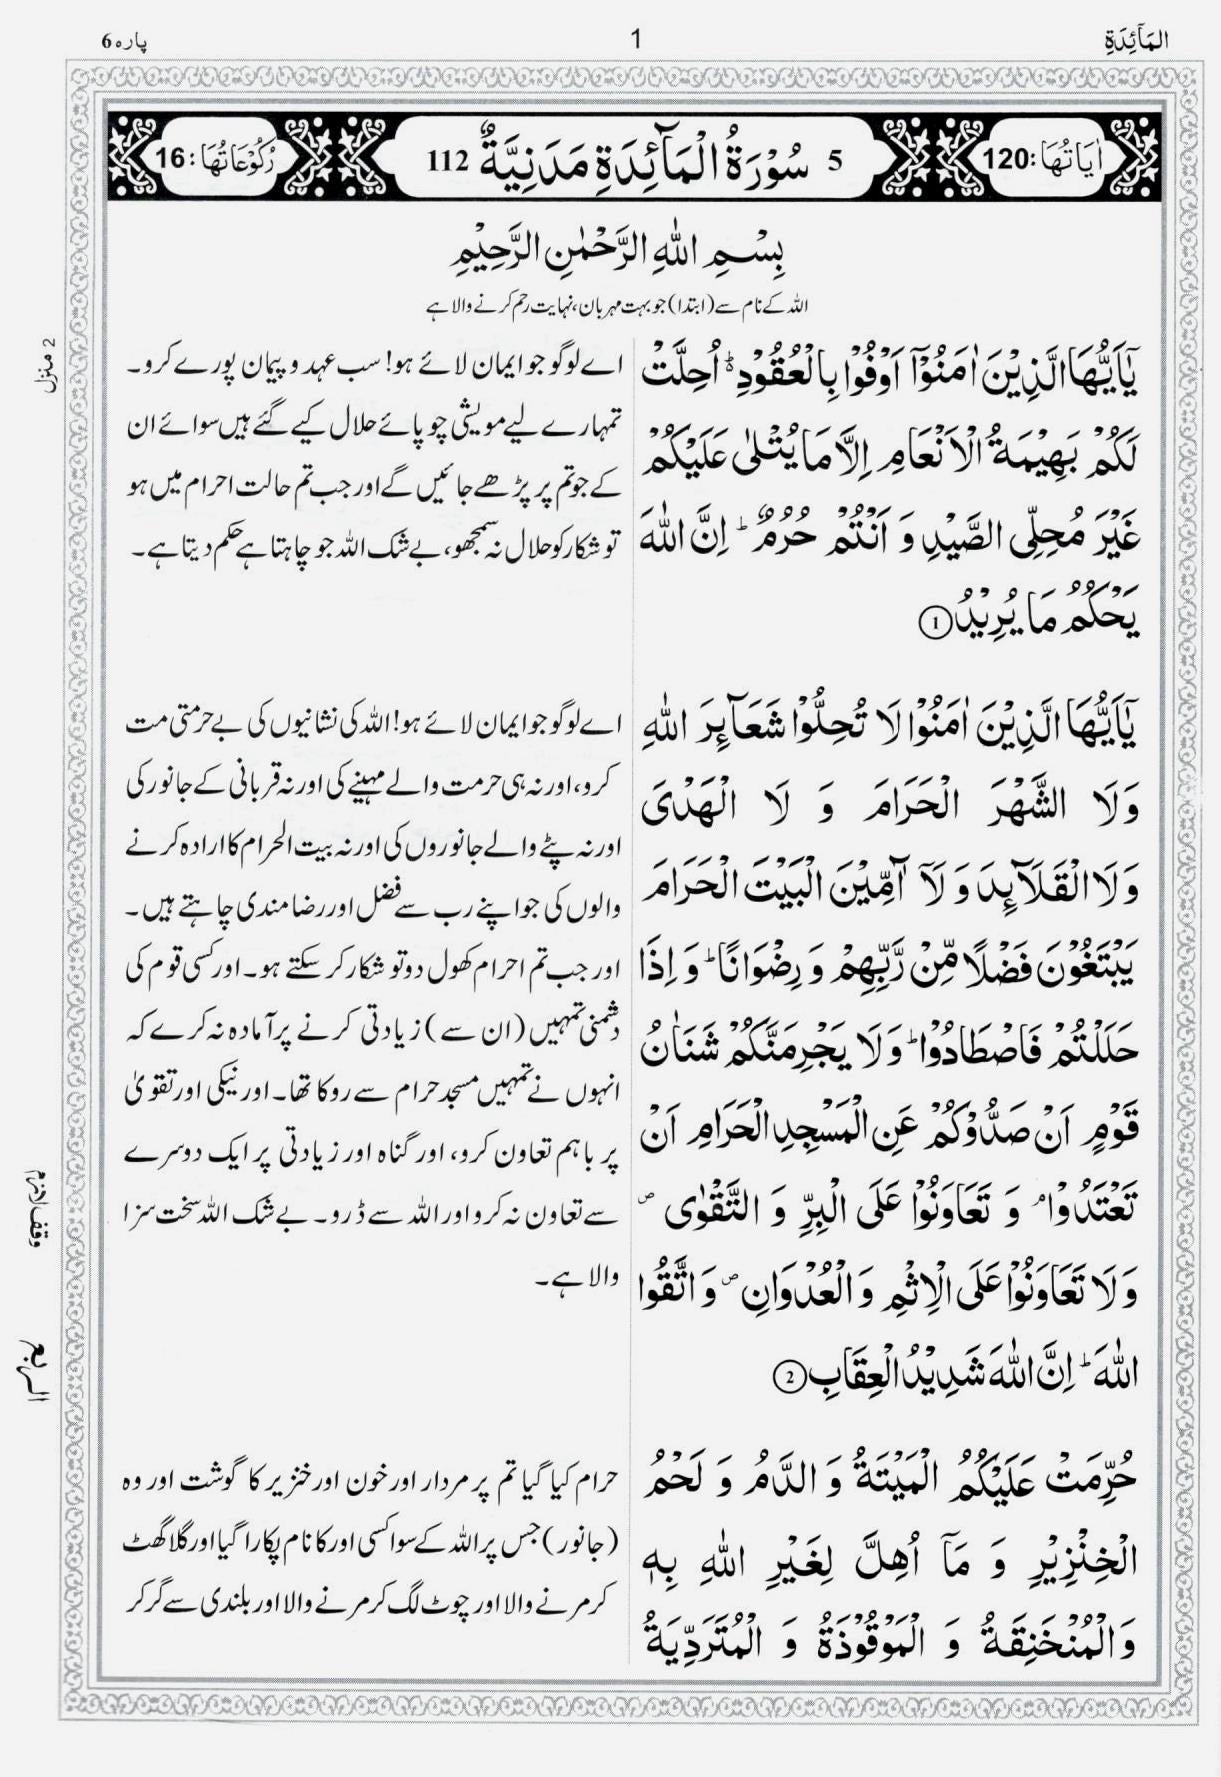 المآئدة
1
پارہ 6
اٰیَاتُهَا: 120
5 سُوْرَةُ الْمَآئِدَةِ مَدَنِیَّةٌ 112
رُكُوْعَاتُهَا: 16
بِسْمِ اللّٰهِ الرَّحْمٰنِ الرَّحِیْمِ
اللہ کے نام سے (ابتدا) جو بہت مہربان، نہایت رحم کرنے والا ہے
یٰۤاَیُّهَا الَّذِیْنَ اٰمَنُوْۤا اَوْفُوْا بِالْعُقُوْدِ ؕ اُحِلَّتْ
لَكُمْ بَهِیْمَةُ الْاَنْعَامِ اِلَّا مَا یُتْلٰى عَلَیْكُمْ
غَیْرَ مُحِلِّی الصَّیْدِ وَ اَنْتُمْ حُرُمٌ ؕ اِنَّ اللّٰهَ
یَحْكُمُ مَا یُرِیْدُ 1
اے لوگو جو ایمان لائے ہو! سب عہد و پیمان پورے کرو۔
تمہارے لیے مویشی چوپائے حلال کیے گئے ہیں سوائے ان
کے جو تم پر پڑھے جائیں گے اور جب تم حالت احرام میں ہو
تو شکار کو حلال نہ سمجھو، بے شک اللہ جو چاہتا ہے حکم دیتا ہے۔
یٰۤاَیُّهَا الَّذِیْنَ اٰمَنُوْا لَا تُحِلُّوْا شَعَآئِرَ اللّٰهِ
وَلَا الشَّهْرَ الْحَرَامَ وَ لَا الْهَدْیَ
وَلَا الْقَلَآئِدَ وَ لَاۤ آٰمِّیْنَ الْبَیْتَ الْحَرَامَ
یَبْتَغُوْنَ فَضْلًا مِّنْ رَّبِّهِمْ وَ رِضْوَانًا ؕ وَ اِذَا
حَلَلْتُمْ فَاصْطَادُوْا ؕ وَ لَا یَجْرِمَنَّكُمْ شَنَاٰنُ
قَوْمٍ اَنْ صَدُّوْكُمْ عَنِ الْمَسْجِدِ الْحَرَامِ اَنْ
تَعْتَدُوْا ۘ وَ تَعَاوَنُوْا عَلَى الْبِرِّ وَ التَّقْوٰى ۪
وَ لَا تَعَاوَنُوْا عَلَى الْاِثْمِ وَ الْعُدْوَانِ ۪ وَ اتَّقُوا
اللّٰهَ ؕ اِنَّ اللّٰهَ شَدِیْدُ الْعِقَابِ 2
اے لوگو جو ایمان لائے ہو! اللہ کی نشانیوں کی بے حرمتی مت
کرو، اور نہ ہی حرمت والے مہینے کی اور نہ قربانی کے جانور کی
اور نہ پٹے والے جانوروں کی اور نہ بیت الحرام کا ارادہ کرنے
والوں کی جو اپنے رب سے فضل اور رضامندی چاہتے ہیں۔
اور جب تم احرام کھول دو تو شکار کر سکتے ہو۔ اور کسی قوم کی
دشمنی تمہیں (ان سے) زیادتی کرنے پر آمادہ نہ کرے کہ
انہوں نے تمہیں مسجد حرام سے روکا تھا۔ اور نیکی اور تقویٰ
پر باہم تعاون کرو، اور گناہ اور زیادتی پر ایک دوسرے
سے تعاون نہ کرو اور اللہ سے ڈرو۔ بے شک اللہ سخت سزا
والا ہے۔
حُرِّمَتْ عَلَیْكُمُ الْمَیْتَةُ وَ الدَّمُ وَ لَحْمُ
الْخِنْزِیْرِ وَ مَاۤ اُهِلَّ لِغَیْرِ اللّٰهِ بِهٖ
وَالْمُنْخَنِقَةُ وَ الْمَوْقُوْذَةُ وَ الْمُتَرَدِّیَةُ
حرام کیا گیا تم پر مردار اور خون اور خنزیر کا گوشت اور وہ
(جانور) جس پر اللہ کے سوا کسی اور کا نام پکارا گیا اور گلا گھٹ
کر مرنے والا اور چوٹ لگ کر مرنے والا اور بلندی سے گر کر
منزل 2
وقف لازم
الربع